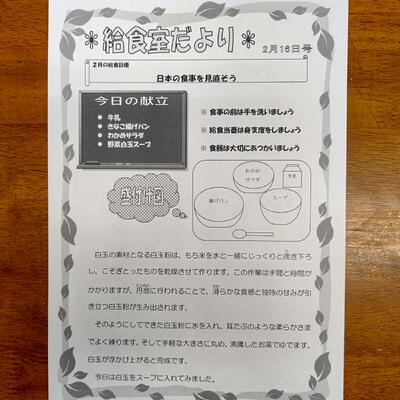 ＊給食室だより＊
2月16日号
2月の給食目標
日本の食事を見直そう
今日の献立
● 牛乳
● きなこ揚げパン
● わかめサラダ
● 野菜白玉スープ
※ 食事の前は手を洗いましょう
※ 給食当番は身支度をしましょう
※ 食器は大切にあつかいましょう
盛付け図
わかめ
サラダ
牛乳
揚げパン
スープ
白玉の素材となる白玉粉は、もち米を水と一緒にじっくりと挽き下ろ
し、こそぎとったものを乾燥させて作ります。この作業は手間と時間が
かかりますが、丹念に行われることで、滑らかな食感と独特の甘みが引
き立つ白玉粉が生み出されます。
そのようにしてできた白玉粉に水を入れ、耳たぶのような柔らかさま
でよく練ります。そして手軽な大きさに丸め、沸騰したお湯でゆでます。
白玉が浮かび上がると完成です。
今日は白玉をスープに入れてみました。